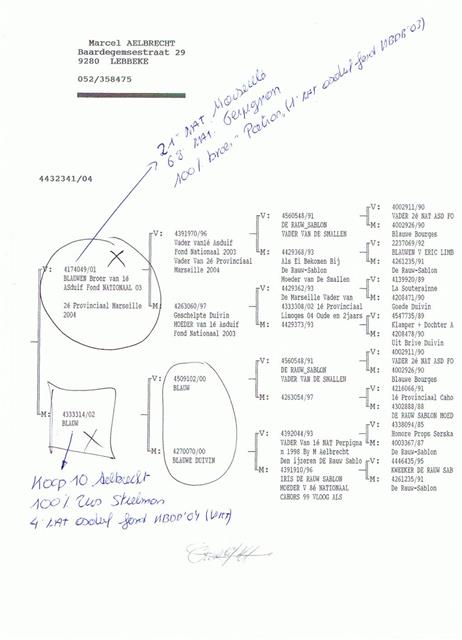 Marcel AELBRECHT
Baardegemsestraat 29
9280 LEBBEKE
052/358475
21° NAT. Marseille
68 NAT. Perpignan
100% broer Patron (1° NAT asduif fond KBDB '03)
4432341/04
V:
4174049/01
BLAUWEN Broer van 1é
Asduif Fond NATIONAAL 03
26 Provinciaal Marseille
2004
M:
4333314/02
BLAUW
KOOP 10 Aelbrecht
100% Zus
4° NAT asduif fond KBDB '04
V:
4391970/96
Vader van1é Asduif
Fond Nationaal 2003
Vader Van 26 Provinciaal
Marseille 2004
M:
4263060/97
Geschelpte Duivin
MOEDER van 1é Asduif
Fond Nationaal 2003
V:
4509102/00
BLAUW
M:
4270070/00
BLAUWE DUIVIN
V:
4560548/91
DE RAUW_SABLON
VADER VAN DE SMALLEN
M:
4429368/93
Als Ei Bekomen Bij
De Rauw-Sablon
Moeder van De Smallen
V:
4429362/93
De Marseille Vader van
4333308/02 1é Provinciaal
Limoges 04 Oude en 2jaars
M:
4429373/93
V:
4560548/91
DE RAUW_SABLON
VADER VAN DE SMALLEN
M:
4263054/97
V:
4392044/93
VADER Van 1é NAT Perpigna
n 1998 By M Aelbrecht
Den ijzeren DE Rauw Sablo
M:
4391910/96
IRIS DE RAUW SABLON
MOEDER V 8é NATIONAAL
CAHORS 99 VLOOG ALS
V:
4002911/90
VADER 2é NAT ASD FO
M:
4002926/90
Blauwe Bourges
V:
2237069/92
BLAUWEN V ERIC LIMB
M:
4261235/91
De Rauw-Sablon
V:
4139920/89
La Souterainne
M:
4208471/90
Goede Duivin
V:
4547735/89
Klamper + Dochter A
M:
4208478/90
Uit Brive Duivin
V:
4002911/90
VADER 2é NAT ASD FO
M:
4002926/90
Blauwe Bourges
V:
4216066/91
1é Provinciaal Caho
M:
4302888/88
DE RAUW SABLON MOED
V:
4338094/85
Honore Props Serska
M:
4003367/87
De Rauw-Sablon
V:
4446435/95
KWEEKER DE RAUW SAB
M:
4261235/91
De Rauw-Sablon